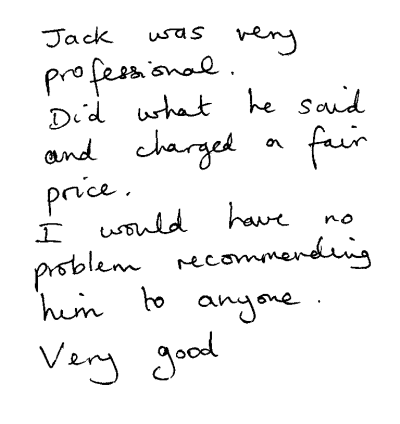 Jack was very
professional.
Did what he said
and charged a fair
price.
I would have no
problem recommending
him to anyone.
Very good